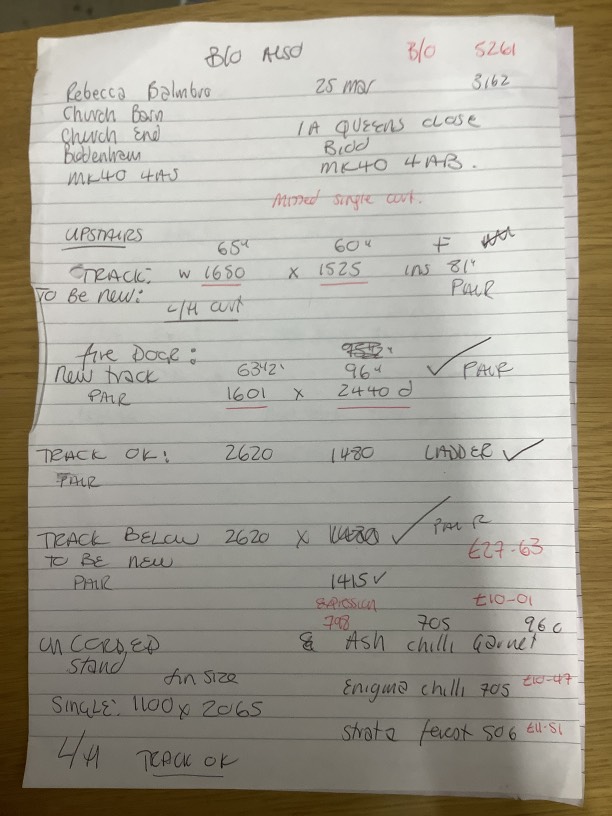 B/O ALSO B/O 5261
Rebecca Balmbro 25 mar 3162
Church Barn
Church End 1A QUEENS CLOSE
Biddenham Bidd
MK40 4AS MK40 4AB.
Missed single curt.
UPSTAIRS 65" 60" F
TRACK: W 1650 x 1525 ins 81"
TO Be new: PAIR
L/H curt
fire DOOR:
New track 63½" 96" ✓ PAIR
PAIR 1601 x 2440 d
TRACK OK: 2620 1480 LADDER ✓
PAIR
TRACK BELOW 2620 x 1480 ✓ PAIR
TO BE NEW £27-63
PAIR 1415 ✓
£10-01
798 705 960
UNCORDED & Ash chilli Garnet
stand
fin size Enigma chilli 705 £10-47
SINGLE: 1100 x 2065
strata 506 £11-51
L/H TRACK OK